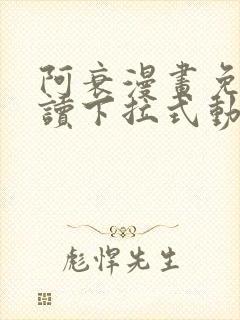 阿衰漫畫免
讀下拉式動
彪悍先生